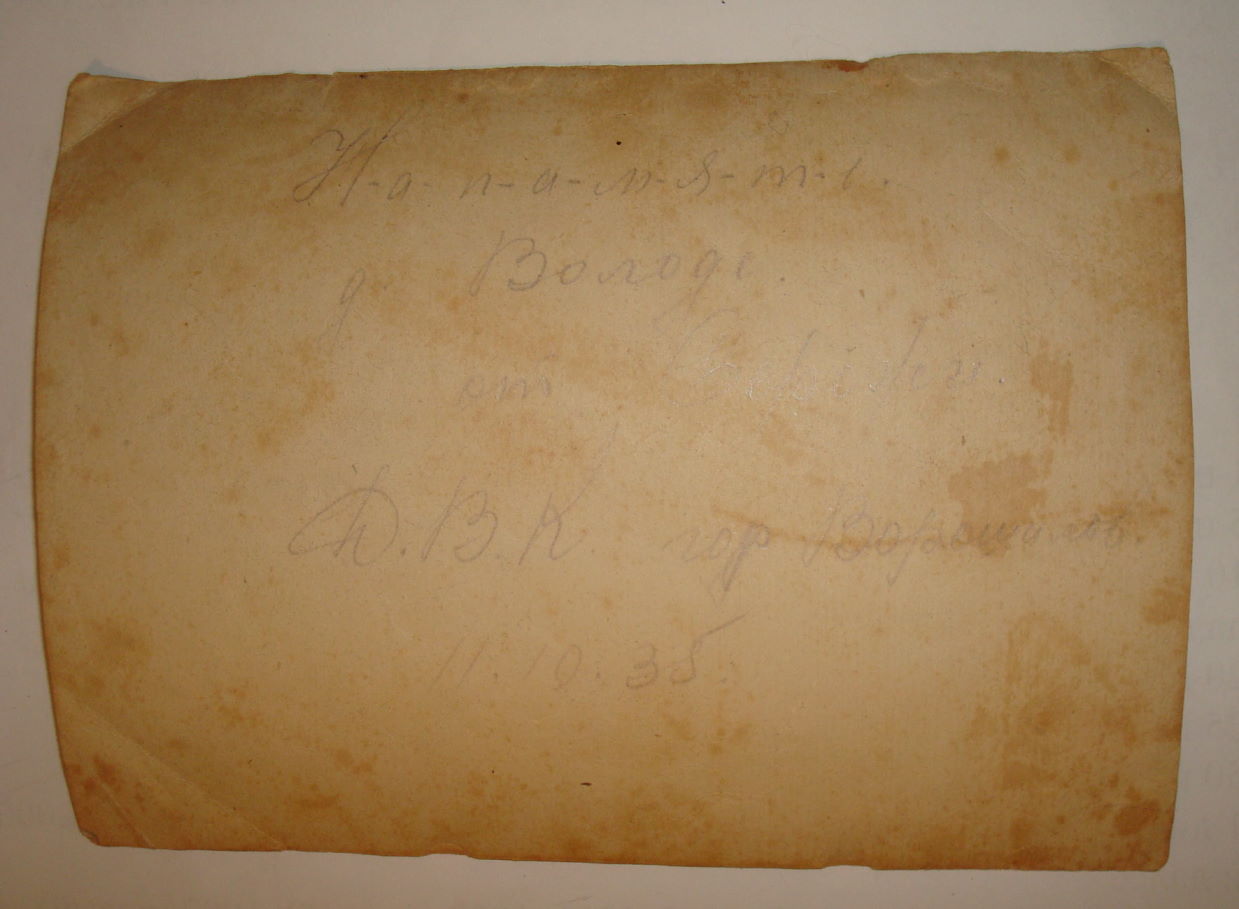 Н-а- п-а-м-я-т-ь.
д. Володе.
от
Д.В.К. гор Ворошилов.
11.10.35.